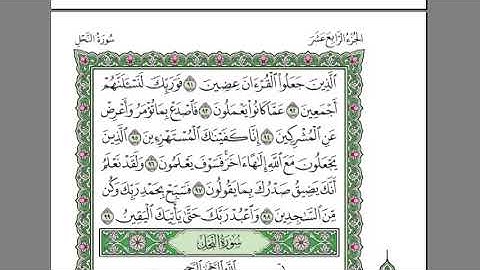 سُورَةُ النَّحْلِ
الجُزْءُ الرَّابِعَ عَشَرَ
ٱلَّذِينَ جَعَلُوا۟ ٱلْقُرْءَانَ عِضِينَ ٩١ فَوَرَبِّكَ لَنَسْـَٔلَنَّهُمْ
أَجْمَعِينَ ٩٢ عَمَّا كَانُوا۟ يَعْمَلُونَ ٩٣ فَٱصْدَعْ بِمَا تُؤْمَرُ وَأَعْرِضْ
عَنِ ٱلْمُشْرِكِينَ ٩٤ إِنَّا كَفَيْنَٰكَ ٱلْمُسْتَهْزِءِينَ ٩٥ ٱلَّذِينَ
يَجْعَلُونَ مَعَ ٱللَّهِ إِلَٰهًا ءَاخَرَ فَسَوْفَ يَعْلَمُونَ ٩٦ وَلَقَدْ نَعْلَمُ
أَنَّكَ يَضِيقُ صَدْرُكَ بِمَا يَقُولُونَ ٩٧ فَسَبِّحْ بِحَمْدِ رَبِّكَ وَكُن
مِّنَ ٱلسَّٰجِدِينَ ٩٨ وَٱعْبُدْ رَبَّكَ حَتَّىٰ يَأْتِيَكَ ٱلْيَقِينُ ٩٩
سُورَةُ النَّحْلِ